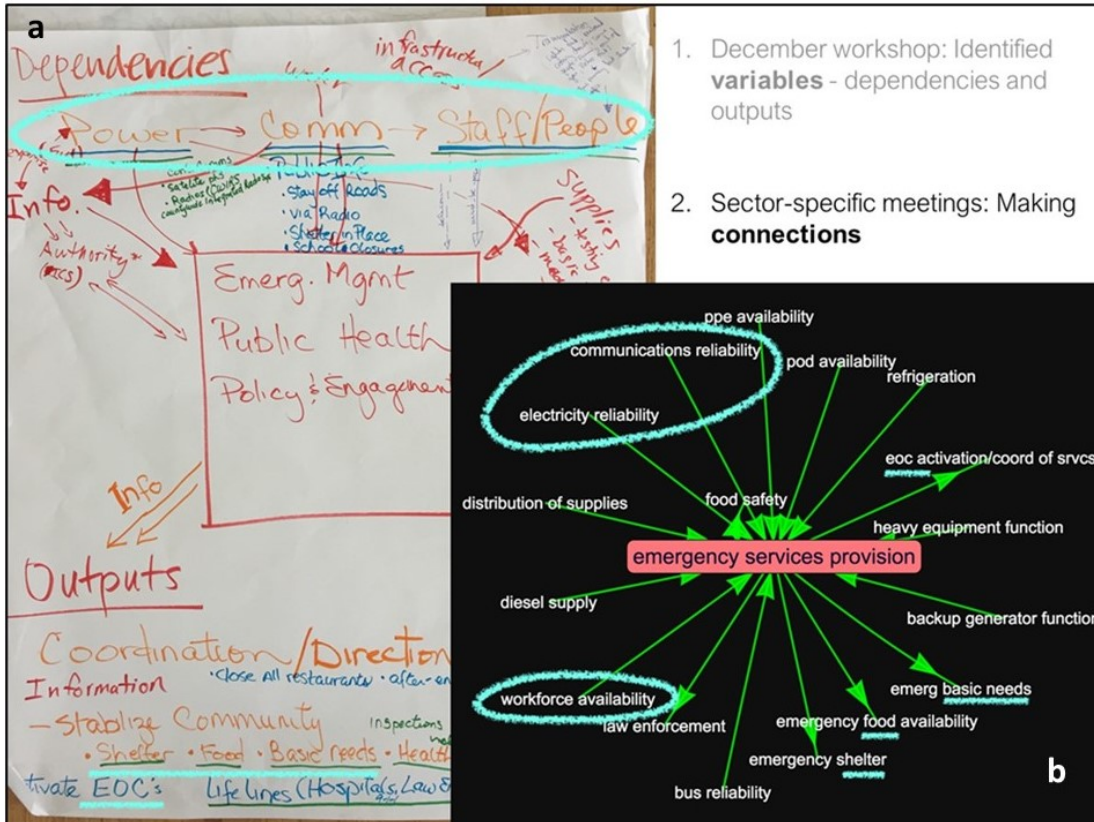 a
Dependencies
infrastructure/
access
Power → Comm → Staff/People
Public Info
• Satellite phs
• Stay off Roads
• via Radio
• Shelter in Place
• School closures
Info.
Authority*
(ICS)
Supplies
- testing
- basic
Emerg. Mgmt
Public Health
Policy & Engagement
Info
Outputs
Coordination/Direction
• Close All restaurants • after-
Information
- Stablize Community
inspections
• Shelter • Food • Basic needs • Health
tivate EOC's Life Lines (Hospitals, Law &
1. December workshop: Identified
variables - dependencies and
outputs
2. Sector-specific meetings: Making
connections
ppe availability
communications reliability
pod availability
refrigeration
electricity reliability
eoc activation/coord of srvcs
distribution of supplies
food safety
heavy equipment function
emergency services provision
diesel supply
backup generator function
workforce availability
emerg basic needs
law enforcement
emergency food availability
emergency shelter
bus reliability
b